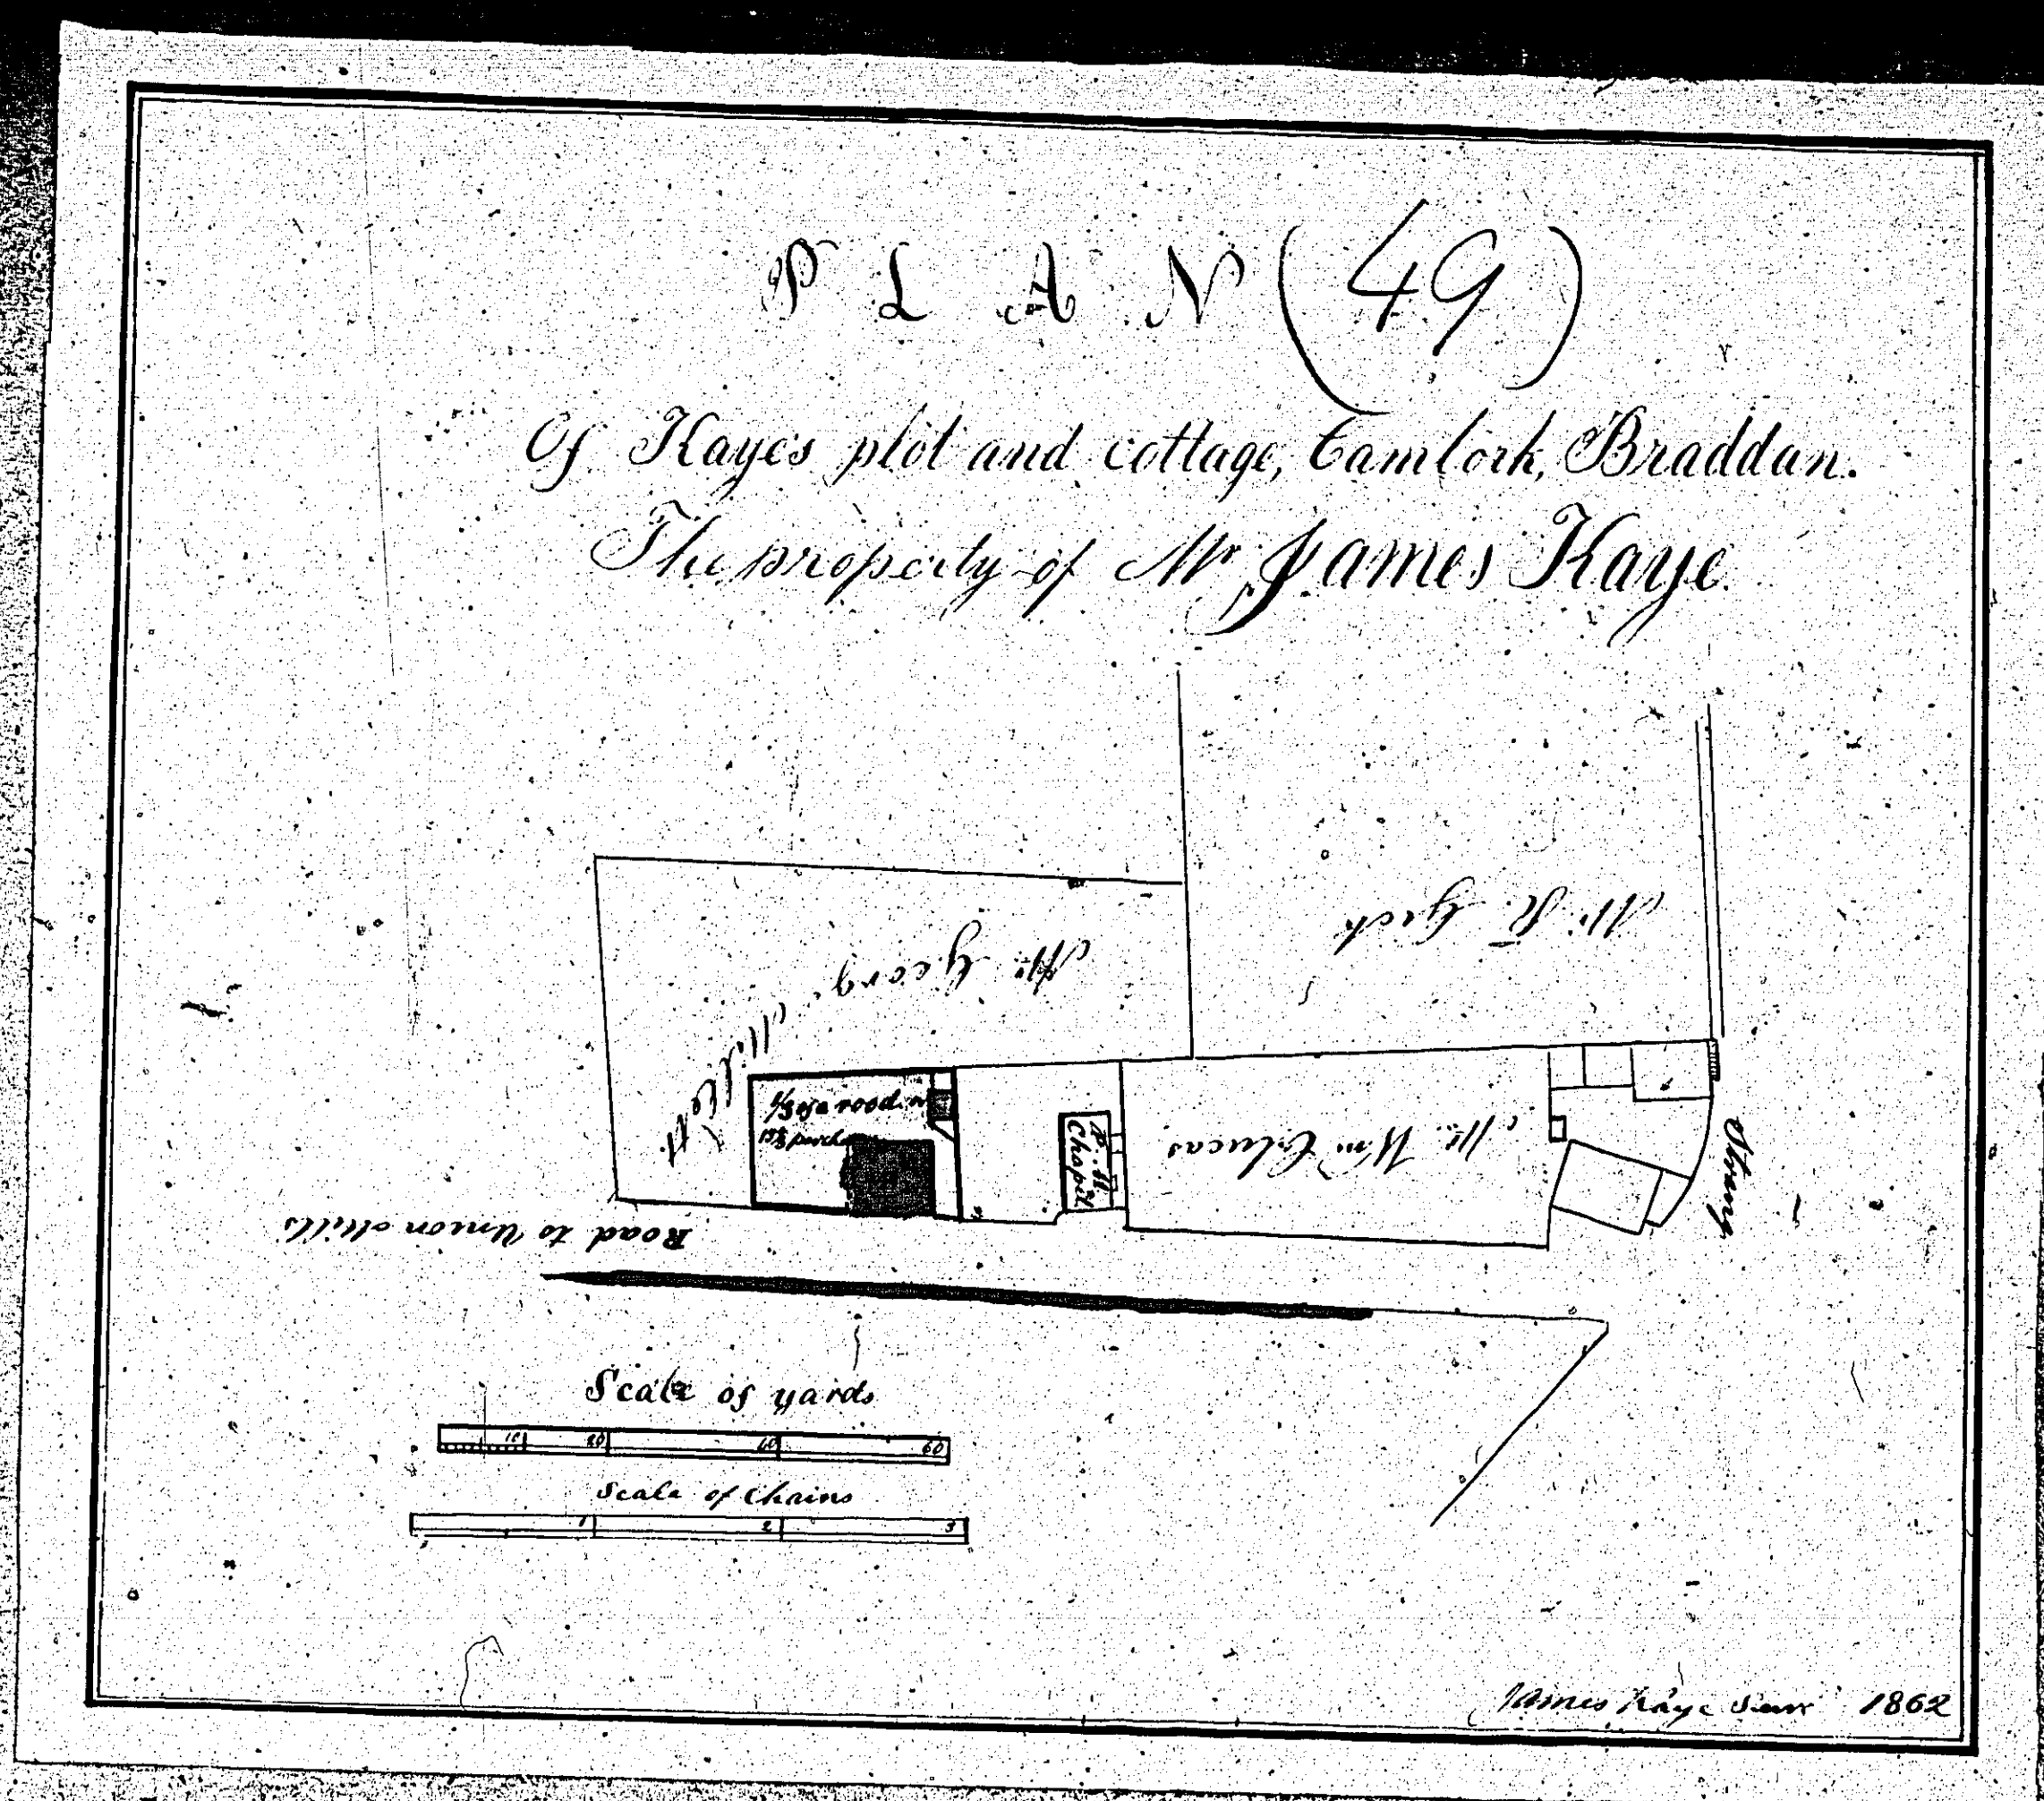 PLAN (49)
Of Kaye's plot and cottage, Camlork, Braddan.
The property of Mr James Kaye.
Mr. R. Geck
Mr. George
1/3 of a rood
13 1/3 perch
P. M. Chapel
Mr. Wm Clucas
Strang
Road to Union Mills
Scale of yards
10 20 40 60
Scale of Chains
1 2 3
James Kaye Surv 1862